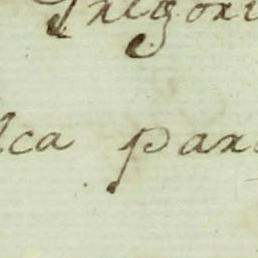 Gregori
lca par